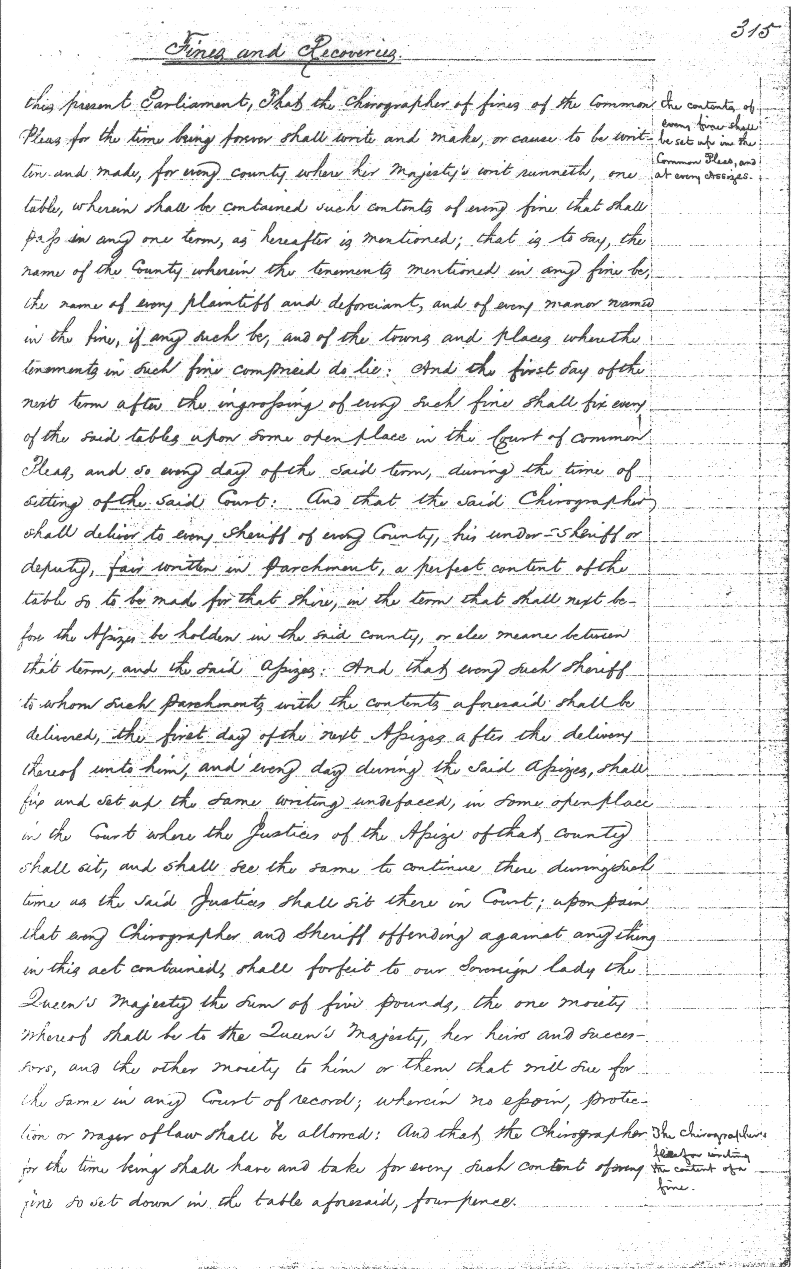 315
Fines and Recoveries.
this present Parliament, That the Chirographer of fines of the Common
Pleas for the time being forever shall write and make, or cause to be writ-
ten and made, for every county where her Majesty's writ runneth, one
table, wherein shall be contained such contents of every fine that shall
pass in any one term, as hereafter is mentioned; that is to say, the
name of the County wherein the tenements mentioned in any fine be,
the name of every plaintiff and deforciant, and of every manor named
in the fine, if any such be, and of the towns and places where the
tenements in such fine comprised do lie: And the first day of the
next term after the ingrossing of every such fine shall fix every
of the said tables upon some open place in the Court of Common
Pleas, and so every day of the said term, during the time of
sitting of the said Court: And that the said Chirographer
shall deliver to every Sheriff of every County, his under-Sheriff or
deputy, fair written in Parchment, a perfect content of the
table so to be made for that shire, in the term that shall next be-
fore the Assizes be holden in the said county, or else meane between
that term, and the said Assizes: And that every such Sheriff
to whom such Parchments with the contents aforesaid shall be
delivered, the first day of the next Assizes after the delivery
thereof unto him, and every day during the said Assizes, shall
fix and set up the same writing undefaced, in some open place
in the Court where the Justices of the Assize of that county
shall sit, and shall see the same to continue there during such
time as the said Justices shall sit there in Court; upon pain
that every Chirographer and Sheriff offending against any thing
in this act contained, shall forfeit to our Sovereign lady the
Queen's Majesty the sum of five pounds, the one moiety
whereof shall be to the Queen's Majesty, her heirs and succes-
sors, and the other moiety to him or them that will sue for
the same in any Court of record; wherein no essoin, protec-
tion or wager of law shall be allowed: And that the Chirographer
for the time being shall have and take for every such content of every
fine so set down in the table aforesaid, four pence.
the contents of
every fine shall
be set up in the
Common Pleas, and
at every Assizes.
The Chirographer's
fees for writing
the content of a
fine.